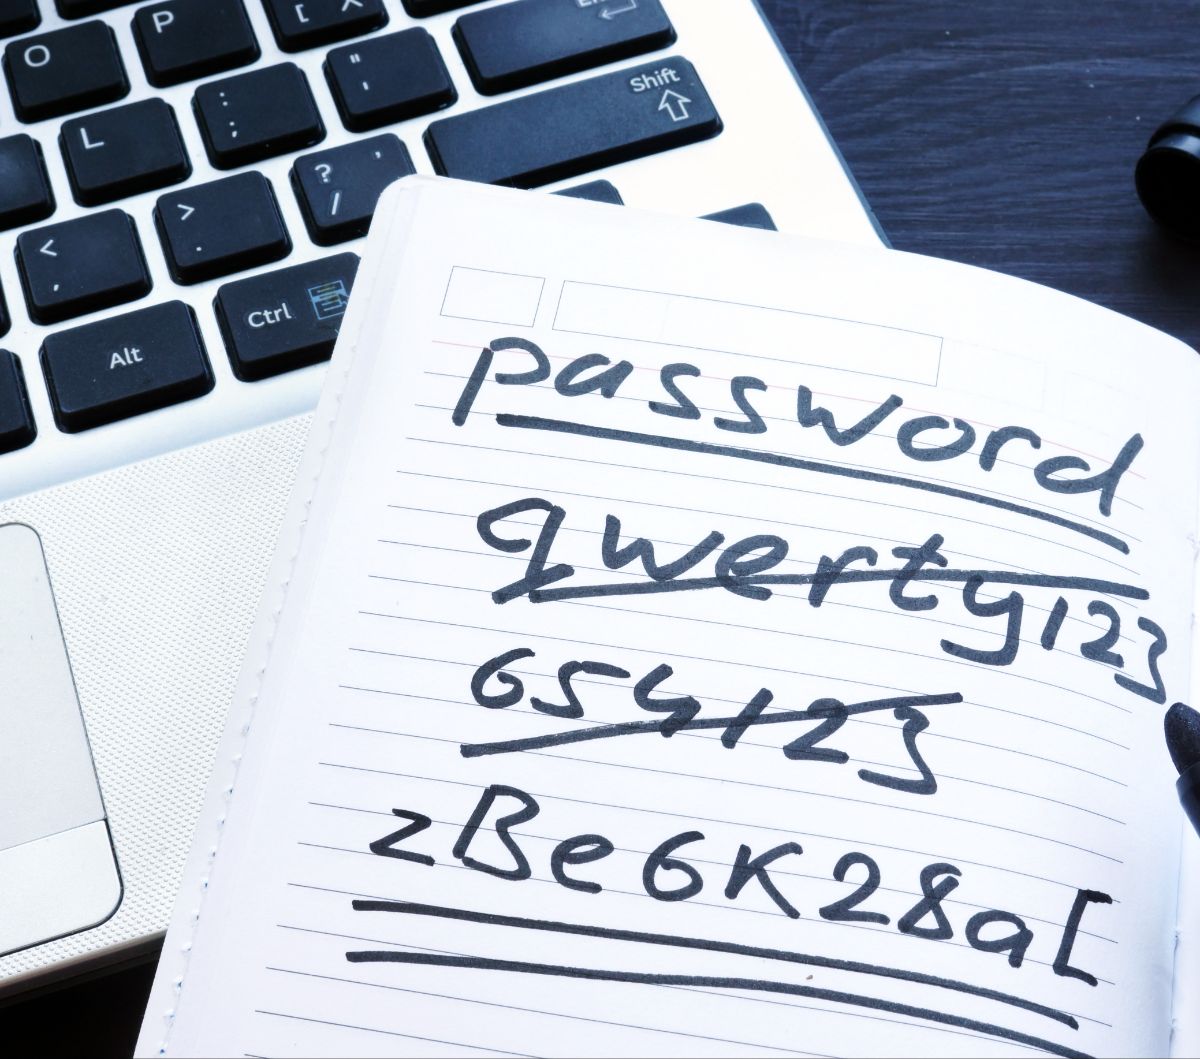 O P [ ^
L : ; " '
< , > . ? / '
Shift
Alt Ctrl
password
qwerty123
654123
zBe6K28a[